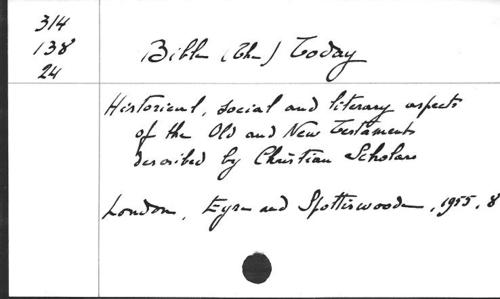 314
138
24
Bible (The) Today
Historical, social and literary aspects
of the Old and New Testaments
described by Christian Scholars
London, Eyre and Spottiswoode, 1955, 8